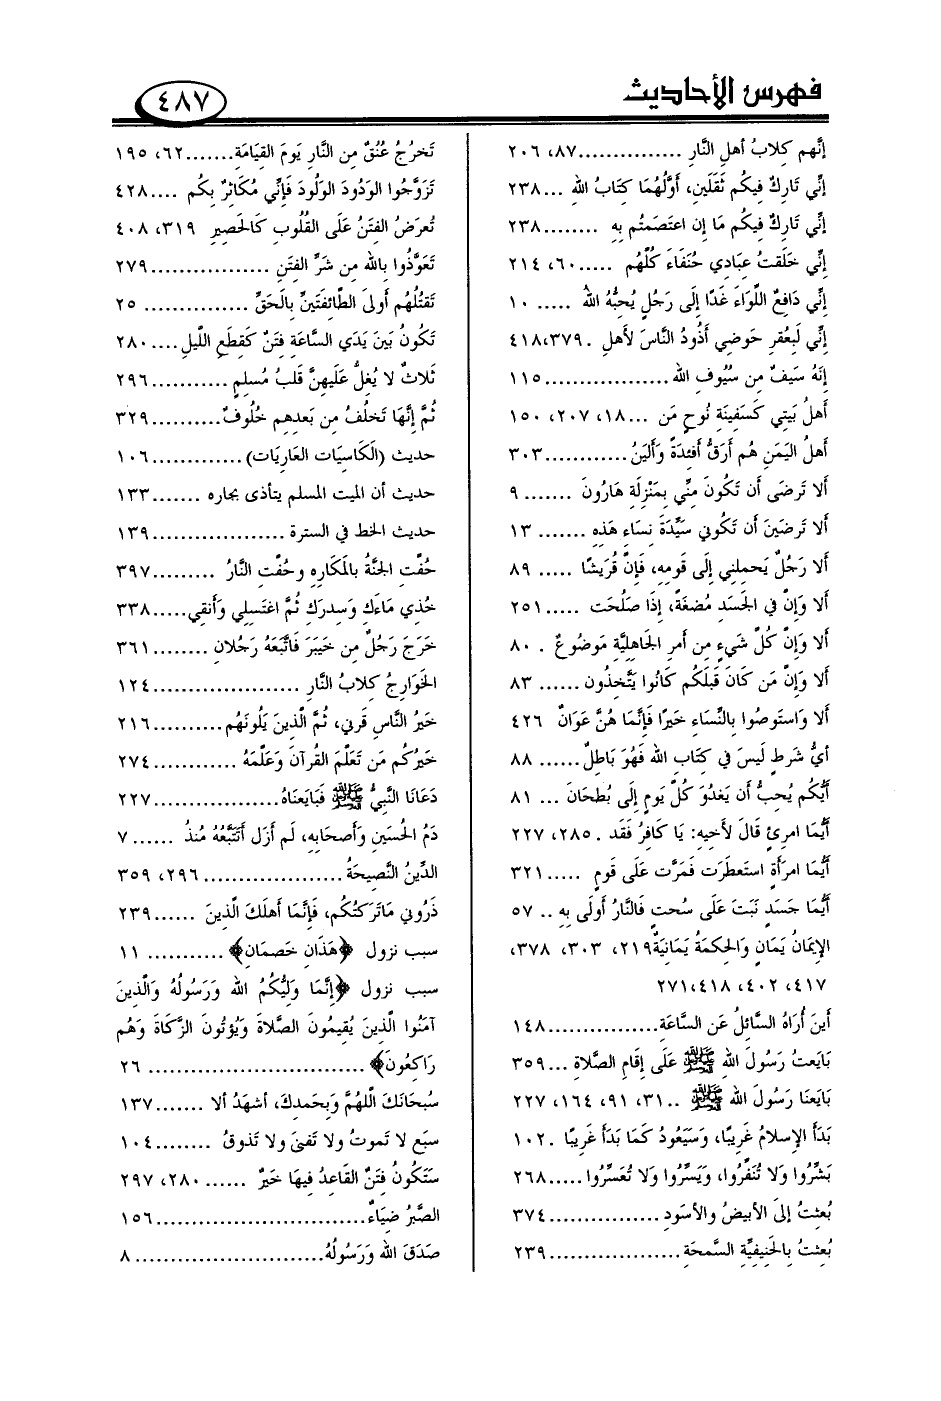 فهرس الأحاديث
٤٨٧
إنَّهم كلابُ أهلِ النَّارِ ............... ٨٧، ٢٠٦
إنِّي تَارِكٌ فيكُم ثَقَلَينِ، أوَّلُهُمَا كِتَابُ الله ... ٢٣٨
إنِّي تَارِكٌ فيكُم مَا إن اعتَصَمتُم بِهِ ........ ٢٣٨
إنِّي خَلَقتُ عِبَادي حُنَفَاءَ كُلَّهُم ..... ٦٠، ٢١٤
إنِّي دَافِعٌ اللِّوَاءَ غَدًا إلَى رَجُلٍ يُحِبُّهُ اللهُ ..... ١٠
إنِّي لَبِعُقرِ حَوضِي أذُودُ النَّاسَ لأهلِ . ٣٧٩، ٤١٨
إنَهُ سَيفٌ مِن سُيُوفِ الله .................. ١١٥
أهلُ بَيتِي كَسَفينَةِ نُوحٍ مَن ... ١٨، ٢٠٧، ١٥٠
أهلُ اليَمَنِ هُم أرَقُّ أفئِدَةً وَألَيَنُ ............ ٣٠٣
ألَا تَرضَى أن تَكُونَ مِنِّي بِمَنْزِلَةِ هَارُونَ ....... ٩
ألَا تَرضَينَ أن تَكُوني سَيِّدَةَ نِسَاءِ هَذِهِ ....... ١٣
ألَا رَجُلٌ يَحمِلني إلَى قَومِهِ، فَإنَّ قُرَيشًا ..... ٨٩
ألَا وَإنَّ في الجَسَد مُضغَةً، إذَا صَلُحَت ..... ٢٥١
ألَا وَإنَّ كُلَّ شَيءٍ مِن أمرِ الجَاهِليَّة مَوضُوعٌ . ٨٠
ألَا وَإنَّ مَن كَانَ قَبلَكُم كَانُوا يَتَّخِذُون ...... ٨٣
ألَا وَاستَوصُوا بِالنِّسَاءِ خَيرًا فَإنَّمَا هُنَّ عَوَانٌ ٤٢٦
أيُّ شَرطٍ لَيسَ في كِتَابِ الله فَهُوَ بَاطِلٌ ...... ٨٨
أيُّكُم يُحِبُّ أن يَغدُوَ كُلَّ يَومٍ إلَى بُطحَانَ ... ٨١
أيُّمَا امرِئٍ قَالَ لأخِيهِ: يَا كَافِرُ فَقَد . ٢٨٥، ٢٢٧
أيُّمَا امرَأةٍ استَعطَرَت فَمَرَّت عَلَى قَومٍ ..... ٣٢١
أيُّمَا جَسَدٍ نَبَتَ عَلَى سُحتٍ فَالنَّارُ أولَى بِهِ .. ٥٧
الإيمَانُ يَمَانٍ وَالحِكمَةُ يَمَانِيَةٌ ٢١٩، ٣٠٣، ٣٧٨،
٤١٧، ٤٠٢، ٤١٨، ٢٧١
أينَ أُرَاهُ السَّائِلُ عَنِ السَّاعَةِ ................ ١٤٨
بَايَعتُ رَسُولَ اللهِ ﷺ عَلَى إقَامِ الصَّلَاةِ ... ٣٥٩
بَايَعنَا رَسُولَ الله ﷺ .. ٣١، ٩١، ١٦٤، ٢٢٧
بَدَأ الإسلامُ غَرِيبًا، وَسَيَعُودُ كَمَا بَدَأ غَرِيبًا . ١٠٢
بَشِّرُوا وَلا تُنَفِّرُوا، وَيَسِّرُوا وَلا تُعَسِّرُوا ..... ٢٦٨
بُعثتُ إلَى الأبيَضُ والأسوَدِ ................ ٣٧٤
بُعثتُ بِالحَنِيفِيَّةِ السَّمحَةِ ................... ٢٣٩
تَخرُجُ عُنُقٌ مِن النَّارِ يَومَ القيَامَةِ ....... ٦٢، ١٩٥
تَزَوَّجُوا الوَدُودَ الوَلُودَ فَإنِّي مُكَاثِرٌ بِكُم .... ٤٢٨
تُعرَضُ الفِتَنُ عَلَى القُلُوبِ كَالحَصِيرِ ٣١٩، ٤٠٨
تَعَوَّذُوا بِالله مِن شَرِّ الفِتَنِ ................. ٢٧٩
تَقتُلُهُم أولَى الطَّائِفَتَينِ بِالحَقِّ ............... ٢٥
تَكُونُ بَينَ يَدَي السَّاعَةِ فِتَنٌ كَقِطَعِ اللَّيلِ .... ٢٨٠
ثَلاثٌ لا يُغِلُّ عَلَيهِنَّ قَلبُ مُسلِمٍ ........... ٢٩٦
ثُمَّ إنَّهَا تَخلُفُ مِن بَعدِهِم خُلُوفٌ .......... ٣٢٩
حديث (الكَاسيَات العَارِيَات) ............. ١٠٦
حديث أن الميت المسلم يتأذى بجاره ....... ١٣٣
حديث الخط في السترة .................... ١٣٩
حُفَّتِ الجَنَّةُ بِالمَكَارِهِ وحُفَّتِ النَّارُ ......... ٣٩٧
خُذِي مَاءَكِ وَسِدرَكِ ثُمَّ اغتَسِلِي وَأنقِي ..... ٣٣٨
خَرَجَ رَجُلٌ مِن خَيبَرَ فَاتَّبَعَهُ رَجُلَانِ ........ ٣٦١
الخَوَارِجُ كِلابُ النَّارِ ..................... ١٢٤
خَيرُ النَّاسِ قَرني، ثُمَّ الَّذِينَ يَلُونَهُم .......... ٢١٦
خَيرُكُم مَن تَعَلَّمَ القُرآنَ وَعَلَّمَهُ ............ ٢٧٤
دَعَانَا النَّبِيُّ ﷺ فَبَايَعنَاهُ .................. ٢٢٧
دَمُ الحُسَينِ وَأصحَابِهِ، لَم أزَل أتَتَبَّعُهُ مُنذُ ...... ٧
الدِّينُ النَّصِيحَةُ ..................... ٢٩٦، ٣٥٩
ذَرُوني مَاتَرَكتُكُم، فَإنَّمَا أهلَكَ الَّذِينَ ...... ٢٣٩
سبب نزول ﴿هَذَانِ خَصمَان﴾ ........... ١١
سبب نزول ﴿إنَّمَا وَليُّكُمُ الله وَرَسُولُهُ وَالَّذِينَ
آمَنُوا الَّذِينَ يُقِيمُونَ الصَّلاةَ وَيُؤتُونَ الزَّكَاةَ وَهُم
رَاكِعُونَ﴾ ............................... ٢٦
سُبحَانَكَ الَّلهُمَّ وَبِحَمدِكَ، أشهَدُ ألا ....... ١٣٧
سبَع لا تَموتُ ولا تَفنىَ ولا تَذوقُ ........ ١٠٤
سَتَكُونُ فِتَنٌ القَاعِدُ فِيهَا خَيرٌ ...... ٢٨٠، ٢٩٧
الصَّبرُ ضِيَاءٌ ............................... ١٥٦
صَدَقَ الله وَرَسُولُهُ ............................ ٨